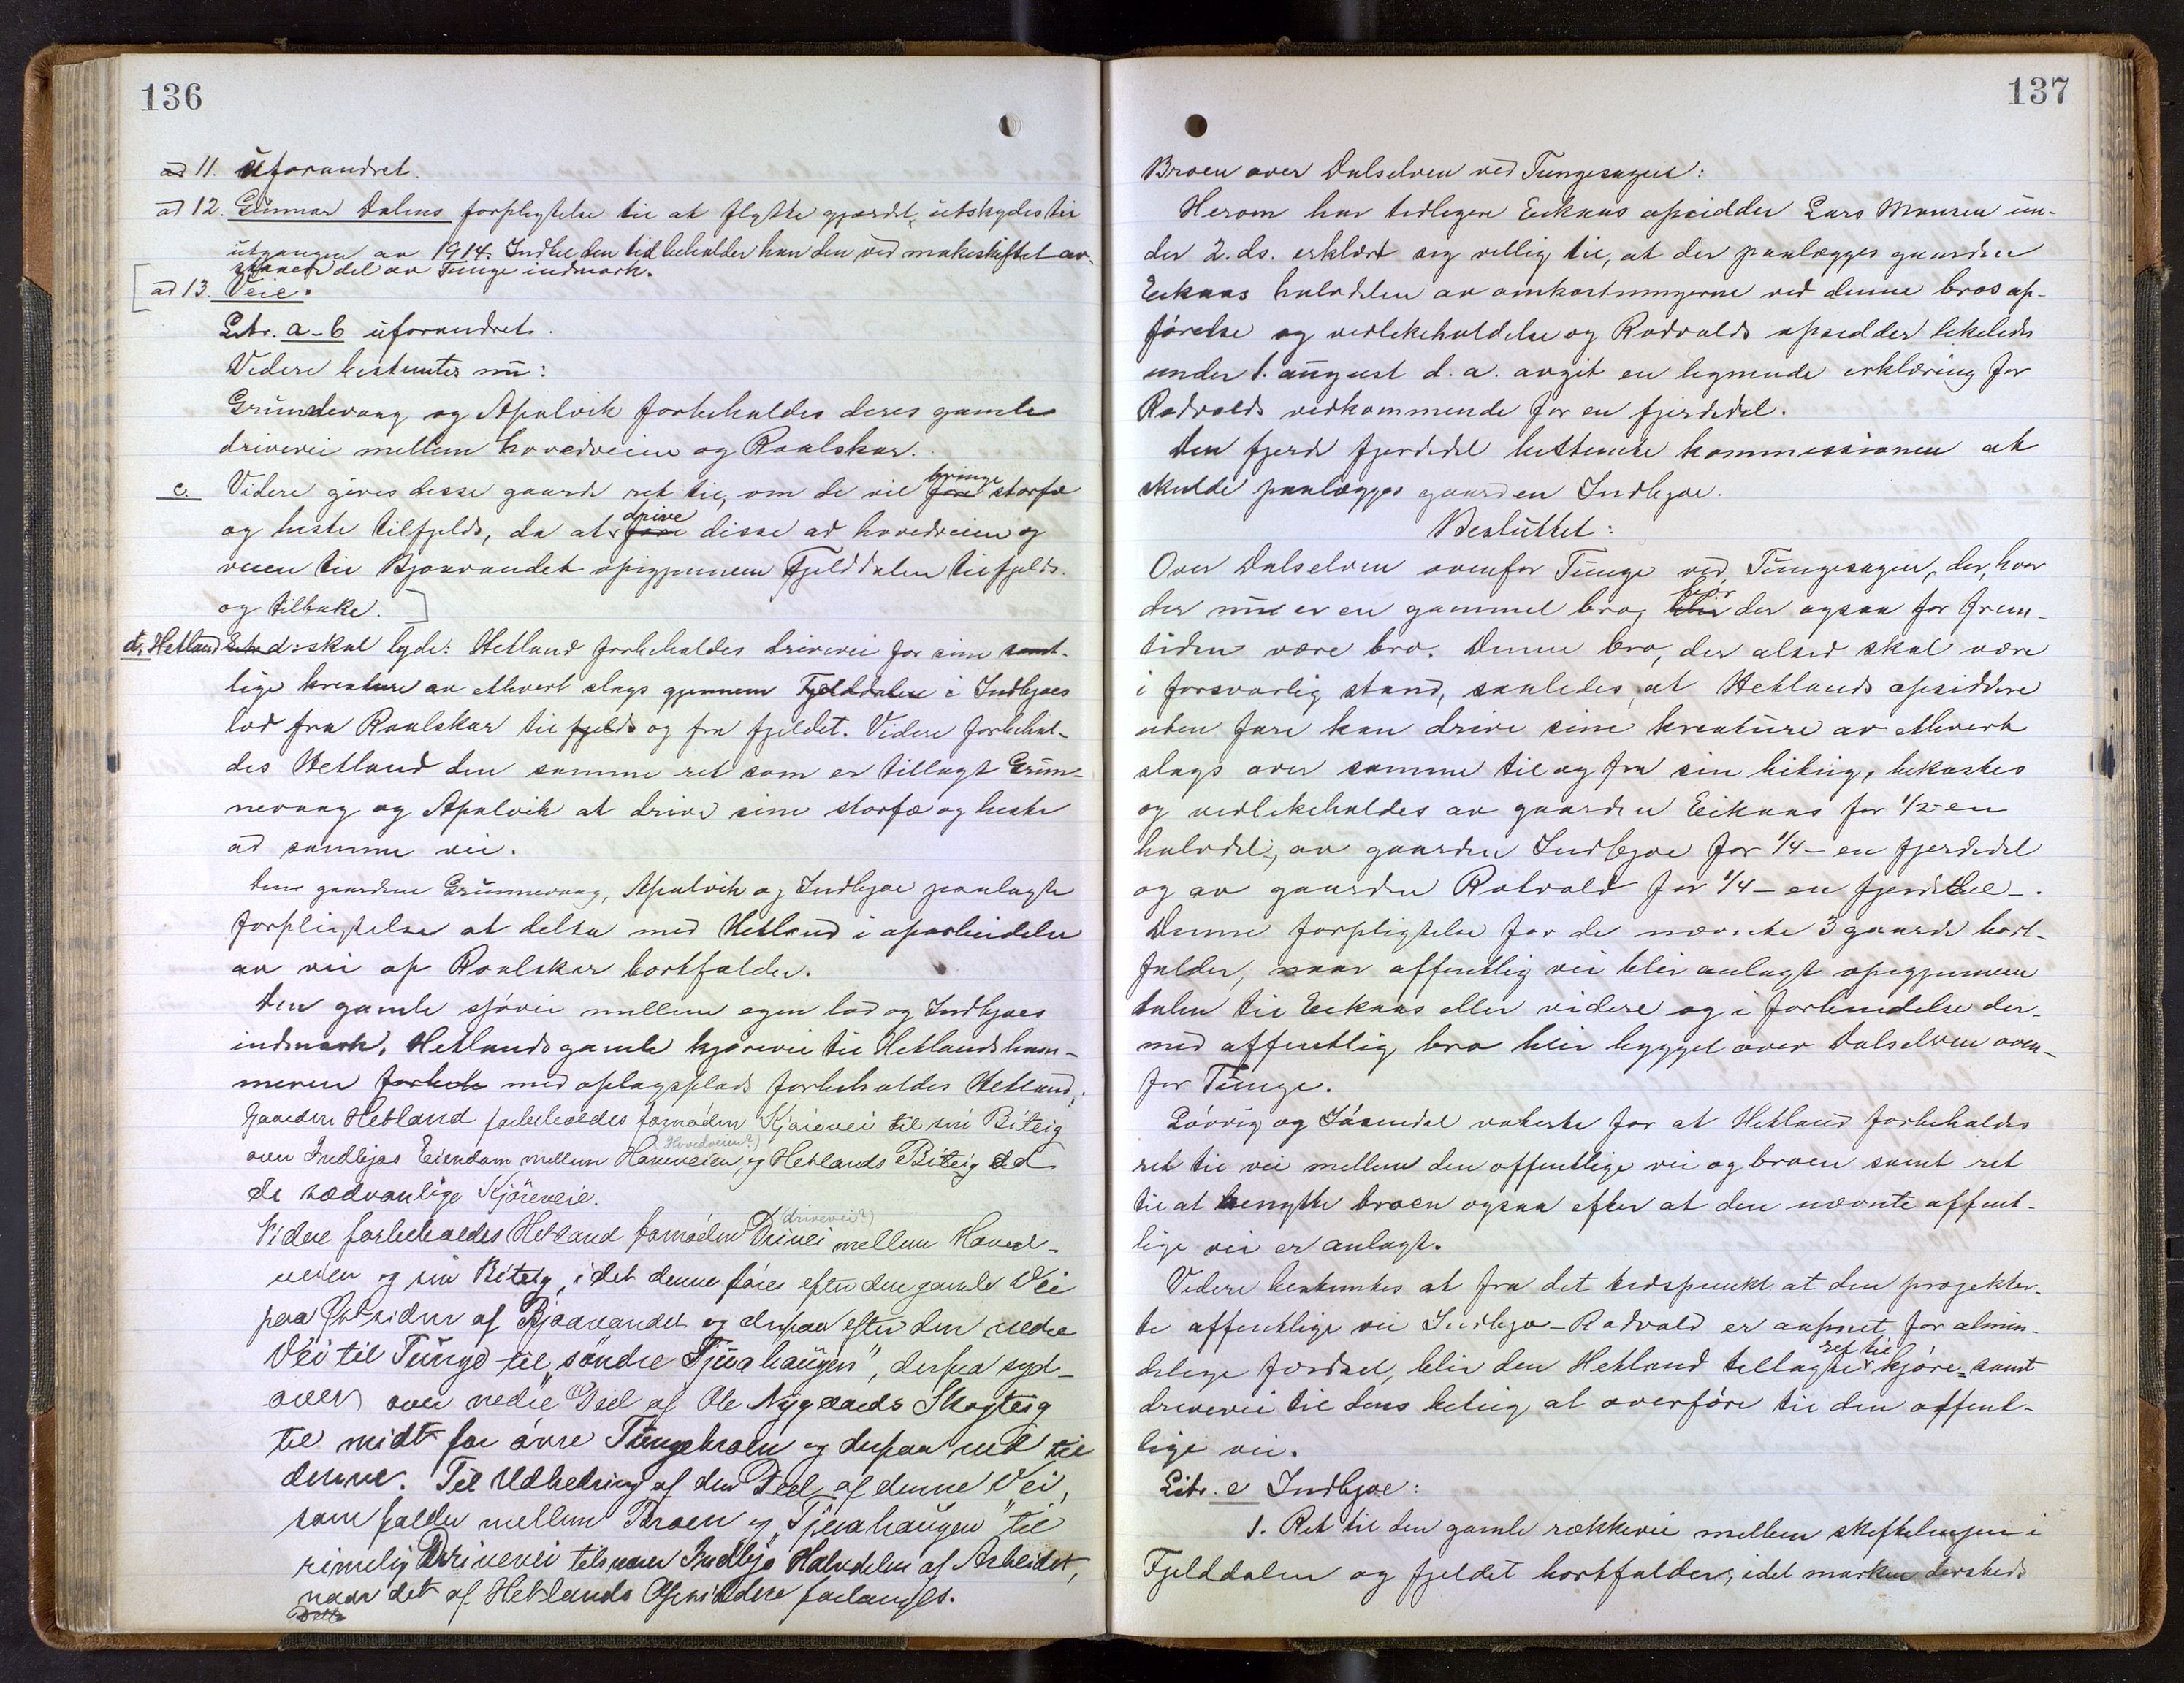 136
ad 11. uforandret.
ad 12. Gunnar Dalens forpligtelse til at flytte gjærdet, utskydes til
utgangen av 1914. Indtil den tid beholder han den ved makeskiftet av-
staaede del av Tunge indmark.
ad 13. Veie.
Litr. a-b uforandret.
Videre bestemtes nu:
Grunnevaag og Apalvik forbeholdes deres gamle
drivevei mellem hovedveien og Raalskar.
c. Videre gives disse gaarde ret til, om de vil bringe storfæ
og heste tilfjelds, da at drive disse ad hovedveien og
veien til Bjaavandet opigjennem Fjelddalen tilfjelds
og tilbake.
d. Hetland Litr d: skal lyde: Hetland forbeholdes drivevei for sine samt-
lige kreature av ethvert slags gjennem Fjelddalen i Indbjoes
lod fra Raalskar til fjelds og fra fjeldet. Videre forbehol-
des Hetland den samme ret som er tillagt Grun-
nevaag og Apalvik at drive sine storfæ og heste
ad samme vei.
Den gaardene Grunnevaag, Apalvik og Indbjoe paalagte
forpligtelse at delta med Hetland i oparbeidelse
av vei op Raalskar bortfalder.
Den gamle sjøvei mellem egen lod og Indbjoes
indmark, Hetlands gamle kjørevei til Hetlandsham-
meren forbeh med oplagsplads forbeholdes Hetland.
Gaarden Hetland forbeholdes fornøden Kjørevei til sin Biteig
(Hovedveien?)
over Indbjos Eiendom mellem Havneveien og Hetlands Biteig ad
de sædvanlige Kjøreveie.
(drivevei?)
Videre forbeholdes Hetland fornøden Drivei mellem Hoved-
veien og sin Biteig, idet denne føres efter den gamle Vei
paa Østsiden af Bjaavandet og derpaa efter den nedre
Vei til Tunge til "søndre Tjuahaugen", derfra syd-
over over nedre Deel af Ole Nygaards Skogteig
til midt for øvre Tungebroen og derpaa ned til
denne. Til Udbedring af den Deel af denne Vei,
som falder mellem Broen og "Tjuahaugen" til
rimelig Drivevei tilsvarer Indbjo Halvdelen af Arbeidet,
naar det af Hetlands Opsiddere forlanges.
Dette
137
Broen over Dalselven ved Tungesagen:
Herom har tidligere Eekaas opsidder Lars Monsen un-
der 2. ds. erklært sig villig til, at der paalægges gaarden
Eekaas halvdelen av omkostningerne ved denne bros op-
førelse og vedlikeholdelse og Rødvolds opsidder likeledes
under 1. august d. a. avgit en lignende erklæring for
Rødvolds vedkommende for en fjerdedel.
Den fjerde fjerdedel bestemte kommissionen at
skulde paalægges gaarden Indbjoe.
Besluttet:
Over Dalselven ovenfor Tunge ved Tungesagen, der, hvor
der nu er en gammel bro, bør der ogsaa for frem-
tiden være bro. Denne bro, der altid skal være
i forsvarlig stand, saaledes, at Hetlands opsiddere
uten fare kan drive sine kreature av ethvert
slags over samme til og fra sin biteig, bekostes
og vedlikeholdes av gaarden Eikaas for 1/2 - en
halvdel, av gaarden Indbjoe for 1/4 - en fjerdedel
og av gaarden Rødvold for 1/4 - en fjerdedel -.
Denne forpligtelse for de nævnte 3 gaarde bort-
falder, naar offentlig vei blir anlagt opigjennem
dalen til Eekaas eller videre og i forbindelse der-
med offentlig bro blir bygget over Dalselven oven-
for Tunge.
Løvvig og Jøsendal voterte for at Hetland forbeholdes
ret til vei mellem den offentlige vei og broen samt ret
til at benytte broen ogsaa efter at den nævnte offent-
lige vei er anlagt.
Videre bestemtes at fra det tidspunkt at den projekter-
te offentlige vei Indbjo-Rødvold er aapnet for almin-
delige færdsel, blir den Hetland tillagte ret til kjøre- samt
drivevei til dens biteig at overføre til den offent-
lige vei.
Litr. e Indbjoe:
1. Ret til den gamle rækkevei mellem skiftelinjen i
Fjelddalen og fjeldet bortfalder, idet marken dersteds